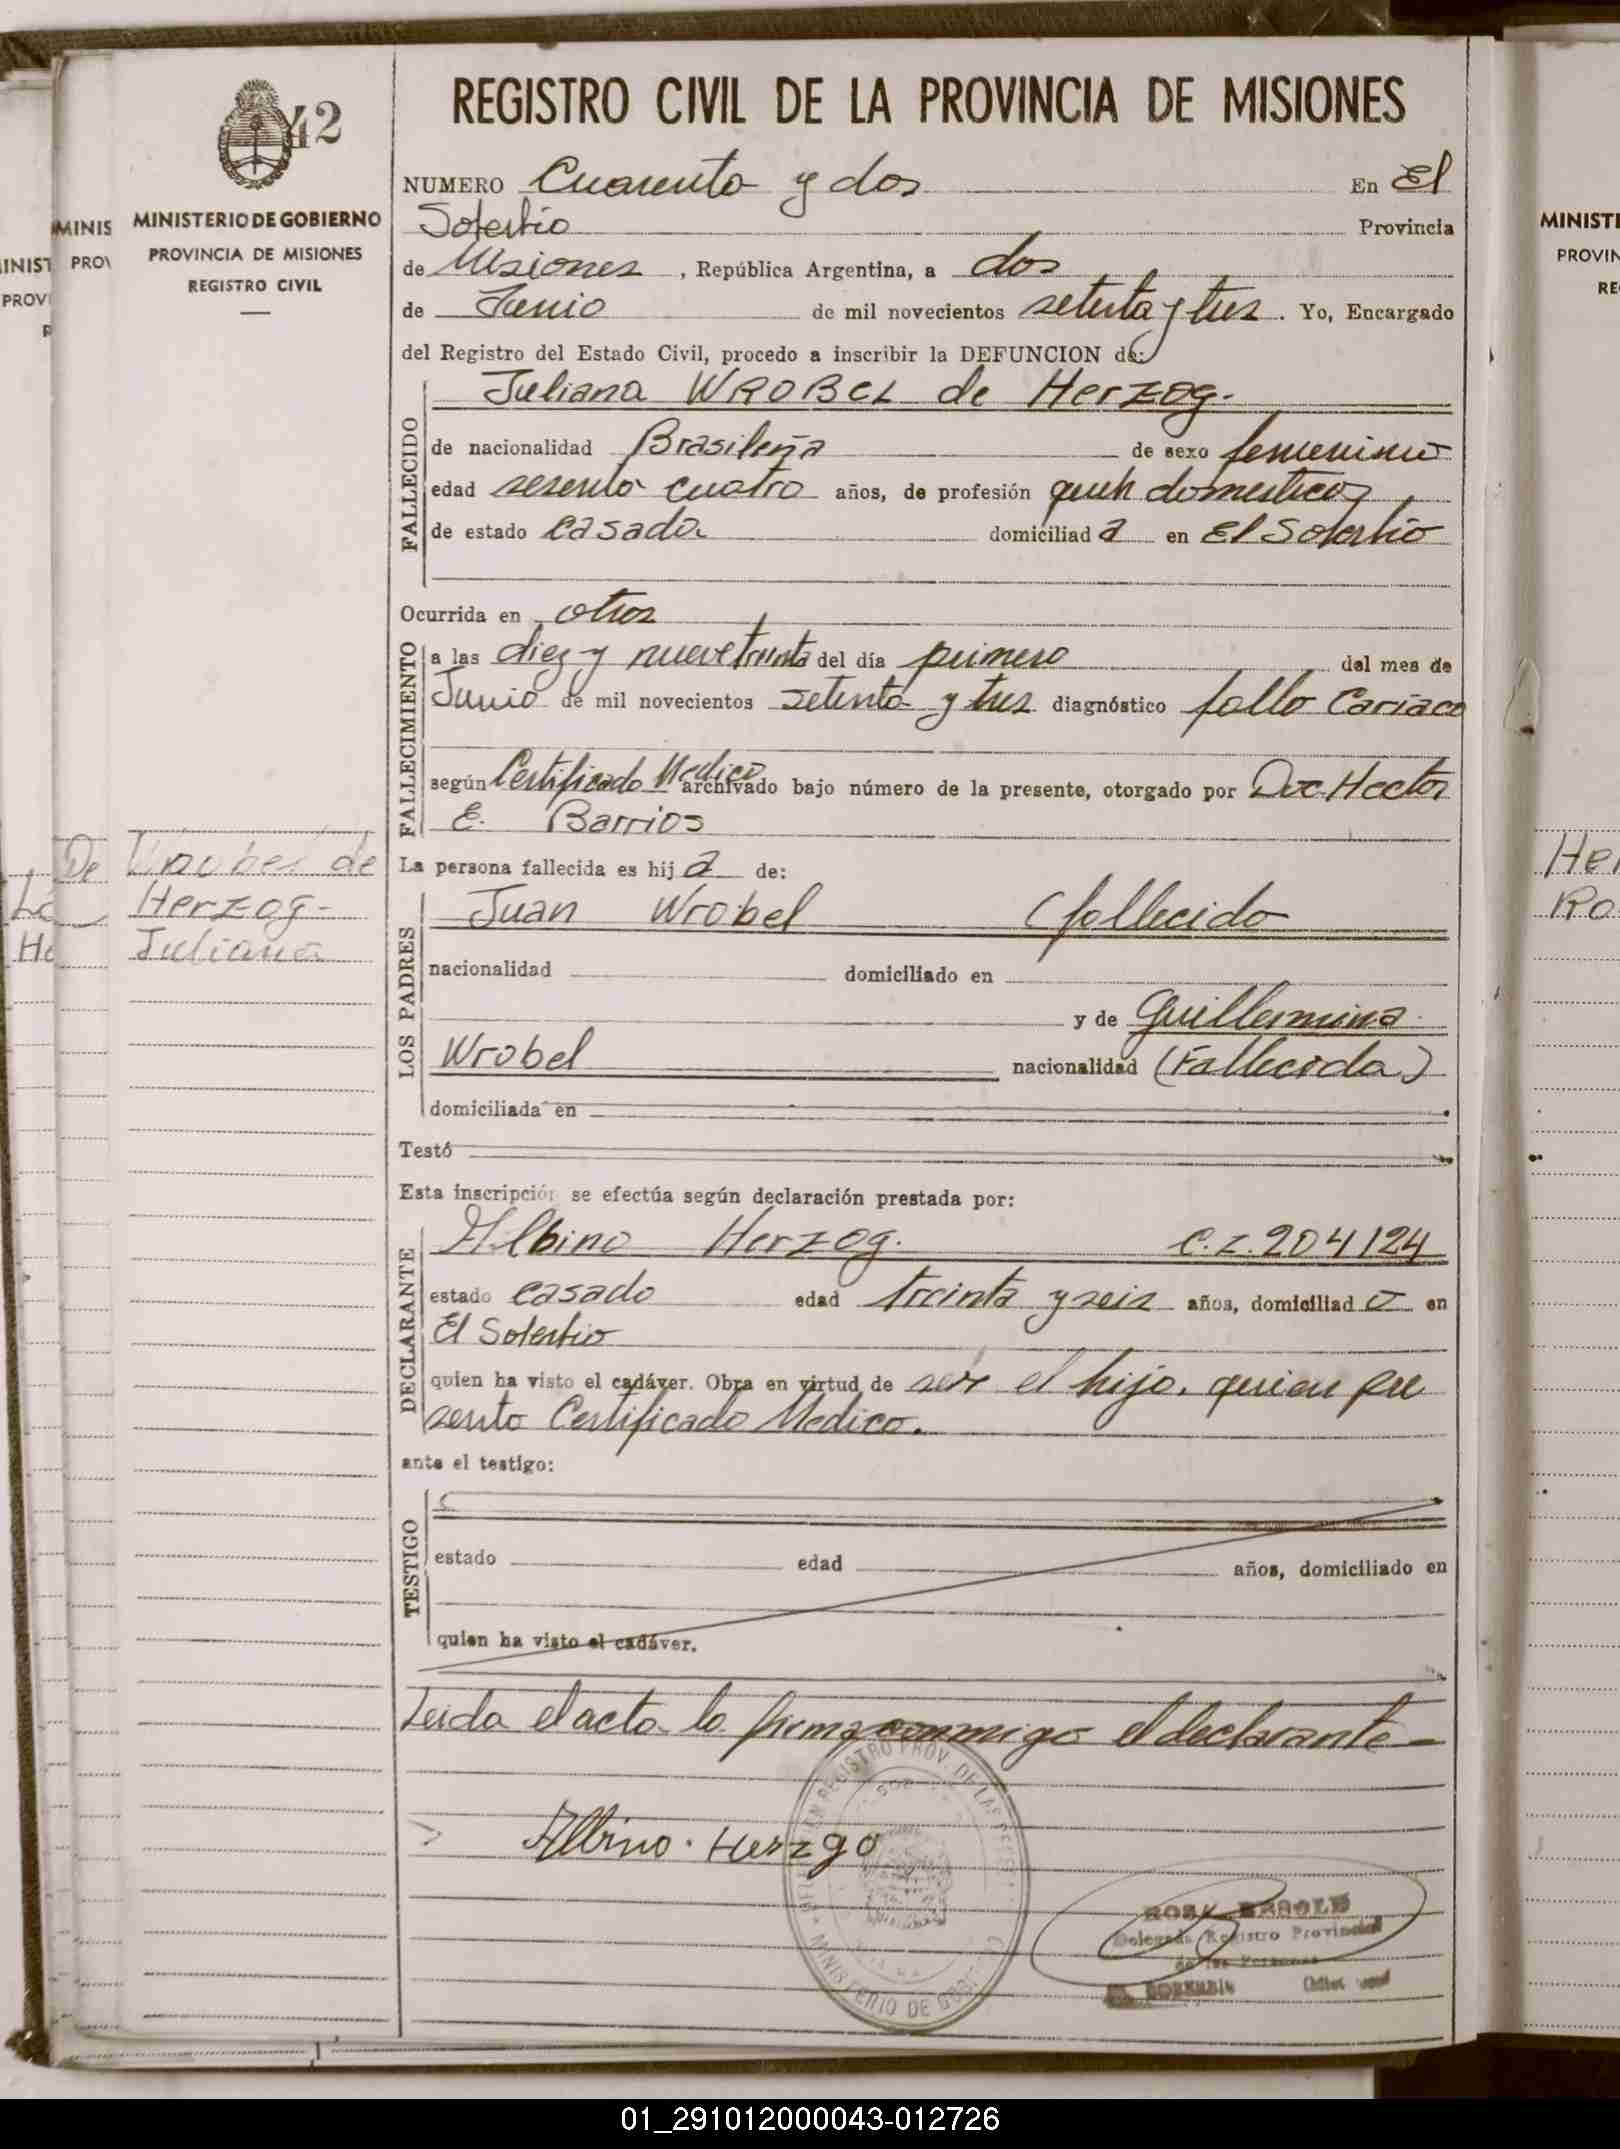 REGISTRO CIVIL DE LA PROVINCIA DE MISIONES
42
MINISTERIO DE GOBIERNO
PROVINCIA DE MISIONES
REGISTRO CIVIL
NUMERO Cuarenta y dos En El
Soberbio Provincia
de Misiones, República Argentina, a dos
de Junio de mil novecientos setenta y tres. Yo, Encargado
del Registro del Estado Civil, procedo a inscribir la DEFUNCION de:
Juliana WROBEL de Herzog.
FALLECIDO
de nacionalidad Brasileña de sexo femenino
edad sesenta cuatro años, de profesión queh domesticos
de estado casada domiciliad a en El Soberbio
Ocurrida en otros
FALLECIMIENTO
a las diez y nueve treinta del día primero del mes de
Junio de mil novecientos setenta y tres diagnóstico fallo Cariaco
según Certificado Medico archivado bajo número de la presente, otorgado por Doc. Hector
E. Barrios
La persona fallecida es hij a de:
Wrobel de
Herzog-
Juliana
LOS PADRES
Juan Wrobel (fallecido
nacionalidad domiciliado en
y de Guillermina
Wrobel nacionalidad (Fallecida)
domiciliada en
Testó
Esta inscripción se efectúa según declaración prestada por:
DECLARANTE
Albino Herzog. C.I. 204124
estado casado edad treinta y seis años, domiciliad o en
El Soberbio
quien ha visto el cadáver. Obra en virtud de ser el hijo, quien pre
sento Certificado Medico.
ante el testigo:
TESTIGO
estado edad años, domiciliado en
quien ha visto el cadáver.
Leida el acta la firma conmigo el declarante
Albino. Herzgo
REGISTRO PROV. DE LAS
MINISTERIO DE
Delegada Registro Provincial
de las Personas
01_291012000043-012726